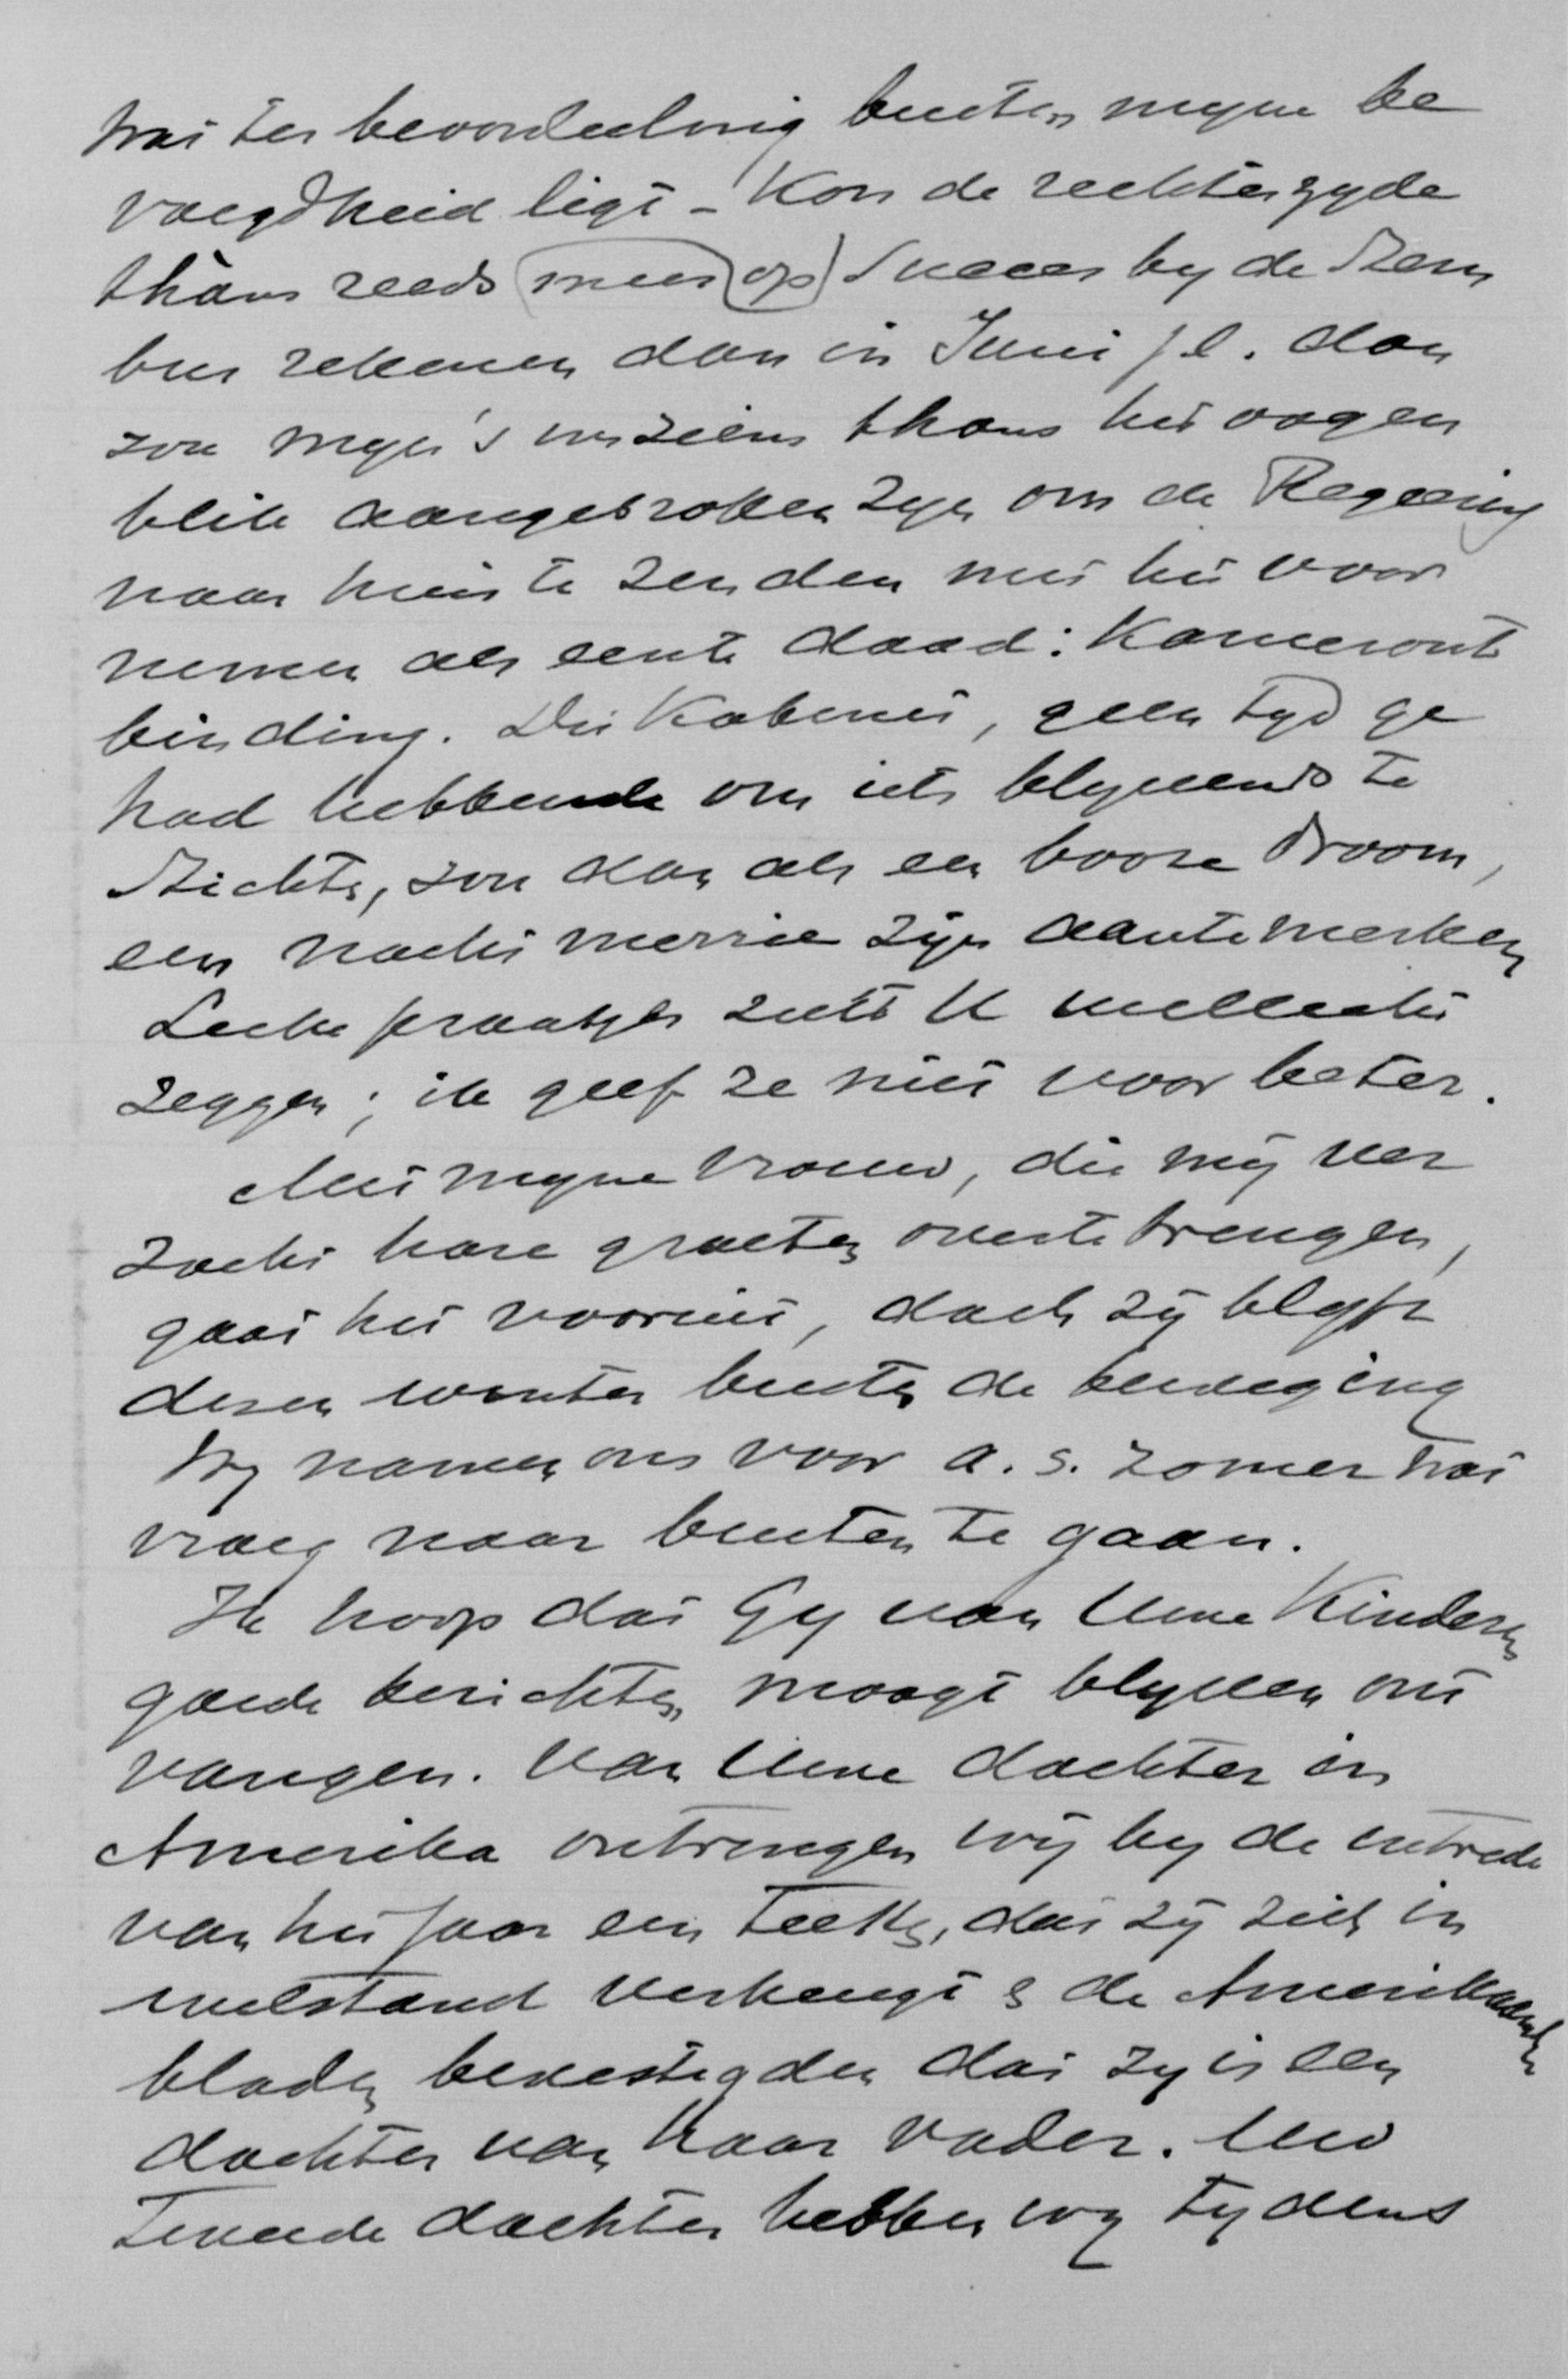 wat ter beoordeeling buiten mijne be
voegdheid ligt – Kon de rechterzyde
thans reeds meer op succes by de stem
bus rekenen dan in Juni j.l. dan
zou myn's inziens thans het oogen
blik aangebroken zyn om de Regeering
naar huis te zenden met het voor
nemen als eerste daad: Kameront
binding. Dit Kabinet, geen tyd ge
had hebbende om iets blyvends te
stichten, zou dan als een booze droom,
een nachtmerrie zijn aantemerken
Leeke praatjes zult U wellicht
zeggen; ik geef ze niet voor beter.
Met myne vrouw, die mij ver
zocht hare groeten overtebrengen,
gaat het vooruit, doch zij blyft
dezen winter buiten de beweging
Wy namen ons voor a.s. zomer wat
vroeg naar buiten te gaan.
Ik hoop dat Gy van Uwe Kinderen
goede berichten moogt blyven ont
vangen. Van Uwe dochter in
Amerika ontvingen wij by de intrede
van het jaar een teeken, dat zij zich in
welstand verheugt & de Amerikaansche
bladen bevestigden dat zy is een
dochter van haar vader. Uw
tweede dochter hebben wy tydens